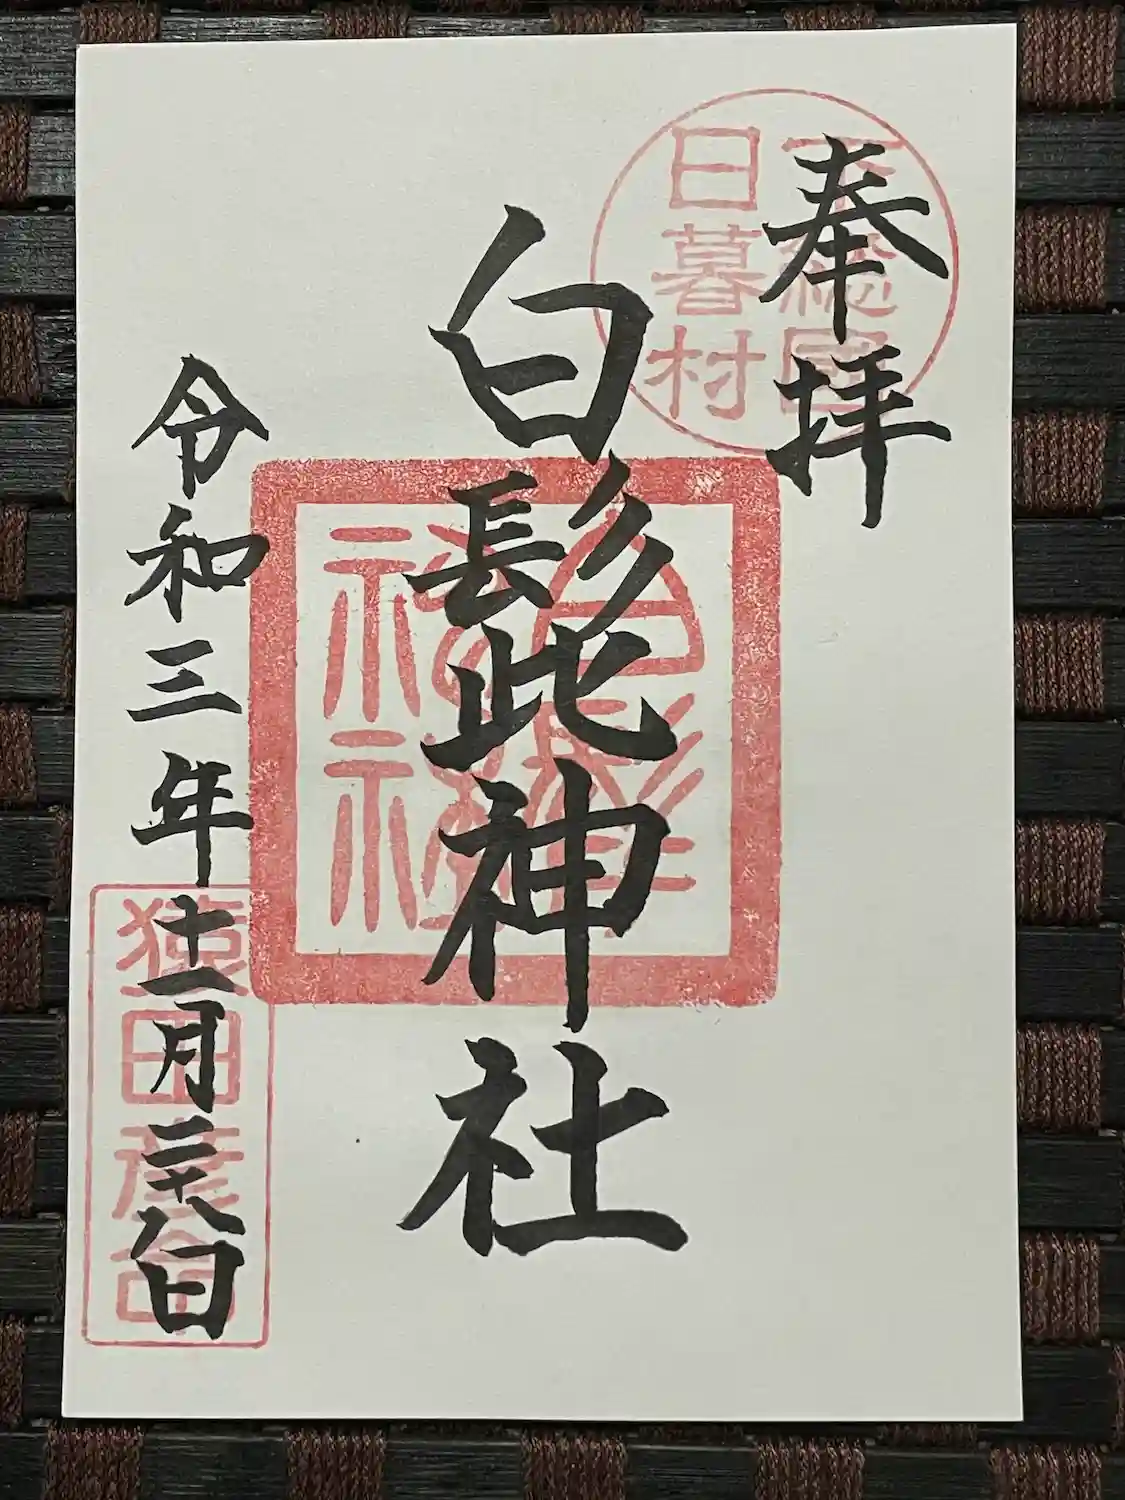 奉拝
下総國
日暮村
白髭神社
白髭
神社
令和三年十一月二十八日
猿田彦命